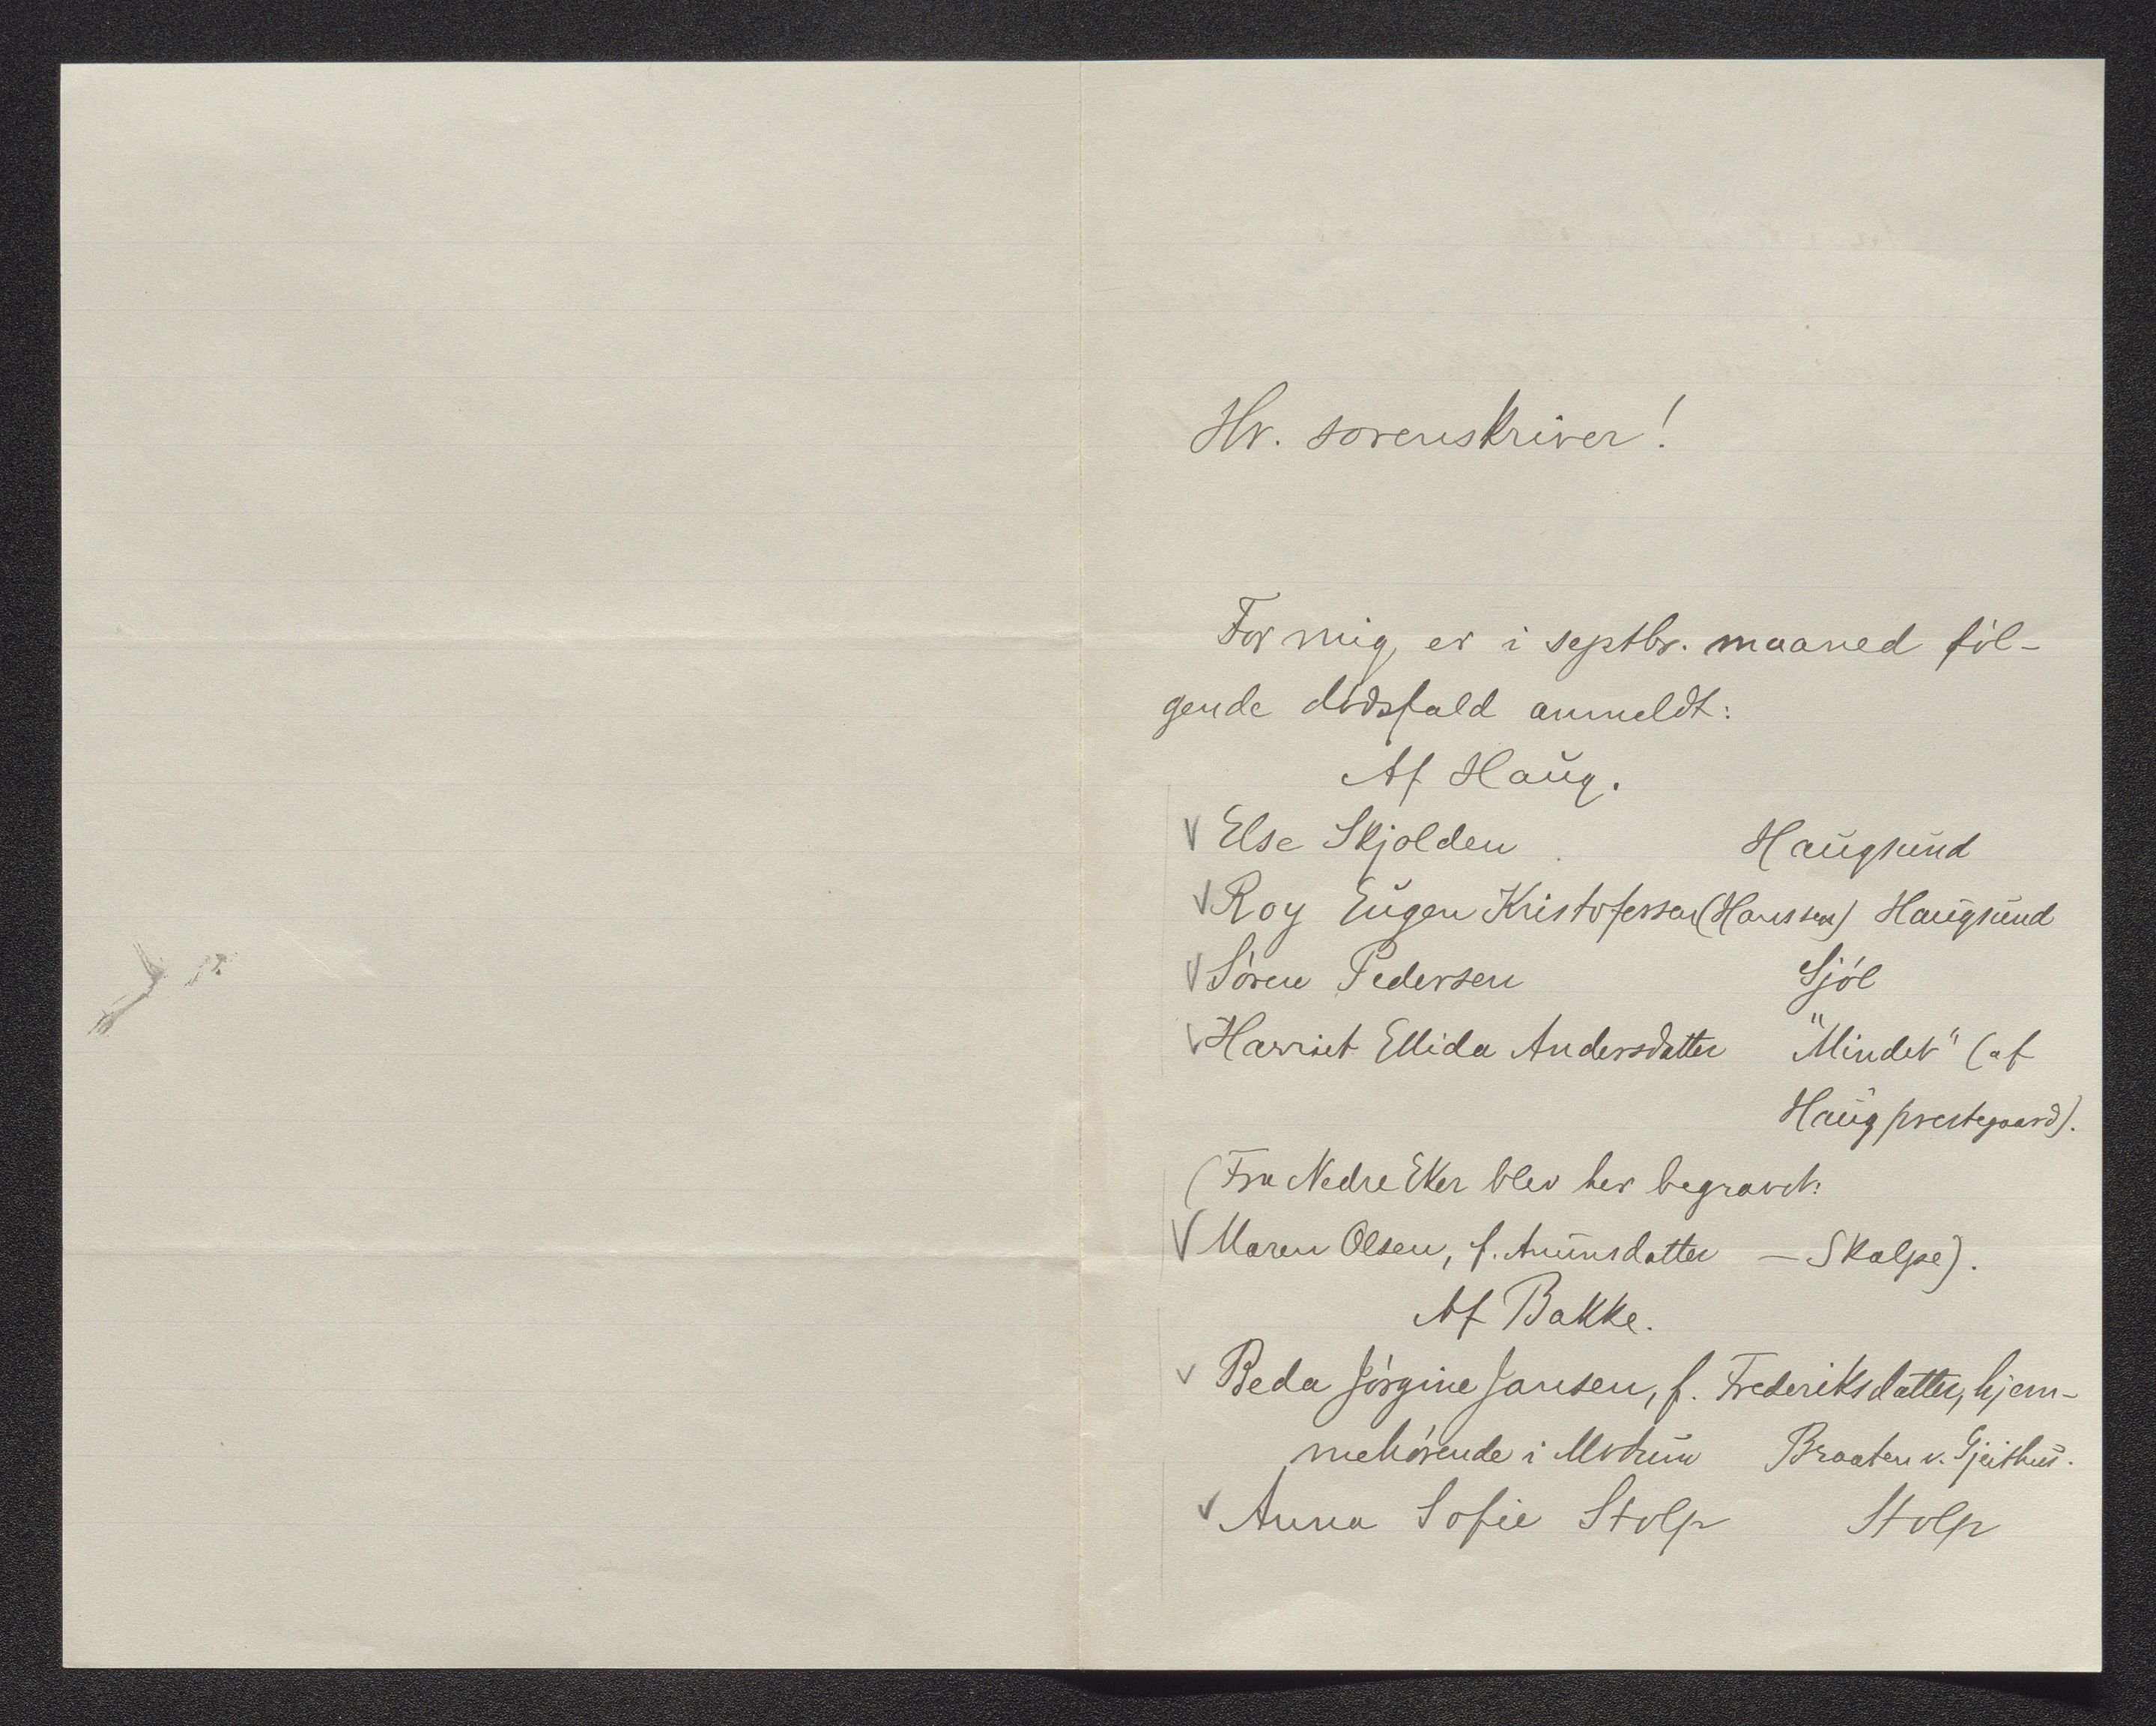 Hr. sorenskriver!
For mig er i septbr. maaned føl-
gende dødsfald anmeldt:
Af Haug.
V Else Skjolden Haugsund
V Roy Eugen Kristofersen (Hanssen) Haugsund
V Søren Pedersen Sjøl
V Harriet Ellida Andersdatter "Mindet" (af
Haug prestegaard).
(Fra Nedre Eker blev her begravet:
V Maren Olsen, f. Amunsdatter — Skalpe).
Af Bakke.
V Beda Jørgine Jansen, f. Frederiksdatter, hjem-
mehørende i Modum Braaten v. Gjeithus.
V Anna Sofie Stolp Stolp